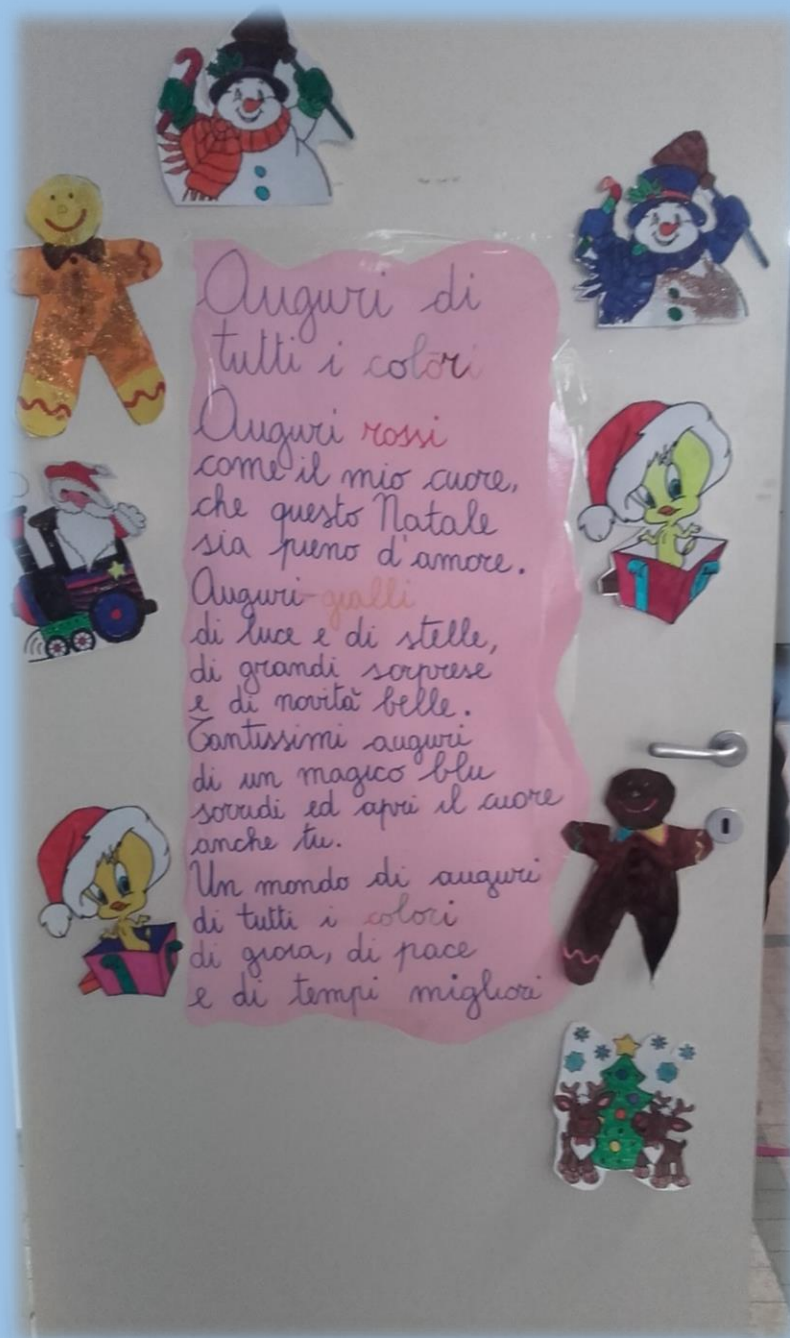 Auguri di
tutti i colori
Auguri rossi
come il mio cuore,
che questo Natale
sia pieno d'amore.
Auguri gialli
di luce e di stelle,
di grandi sorprese
e di novità belle.
Tantissimi auguri
di un magico blu
sorridi ed apri il cuore
anche tu.
Un mondo di auguri
di tutti i colori
di gioia, di pace
e di tempi migliori